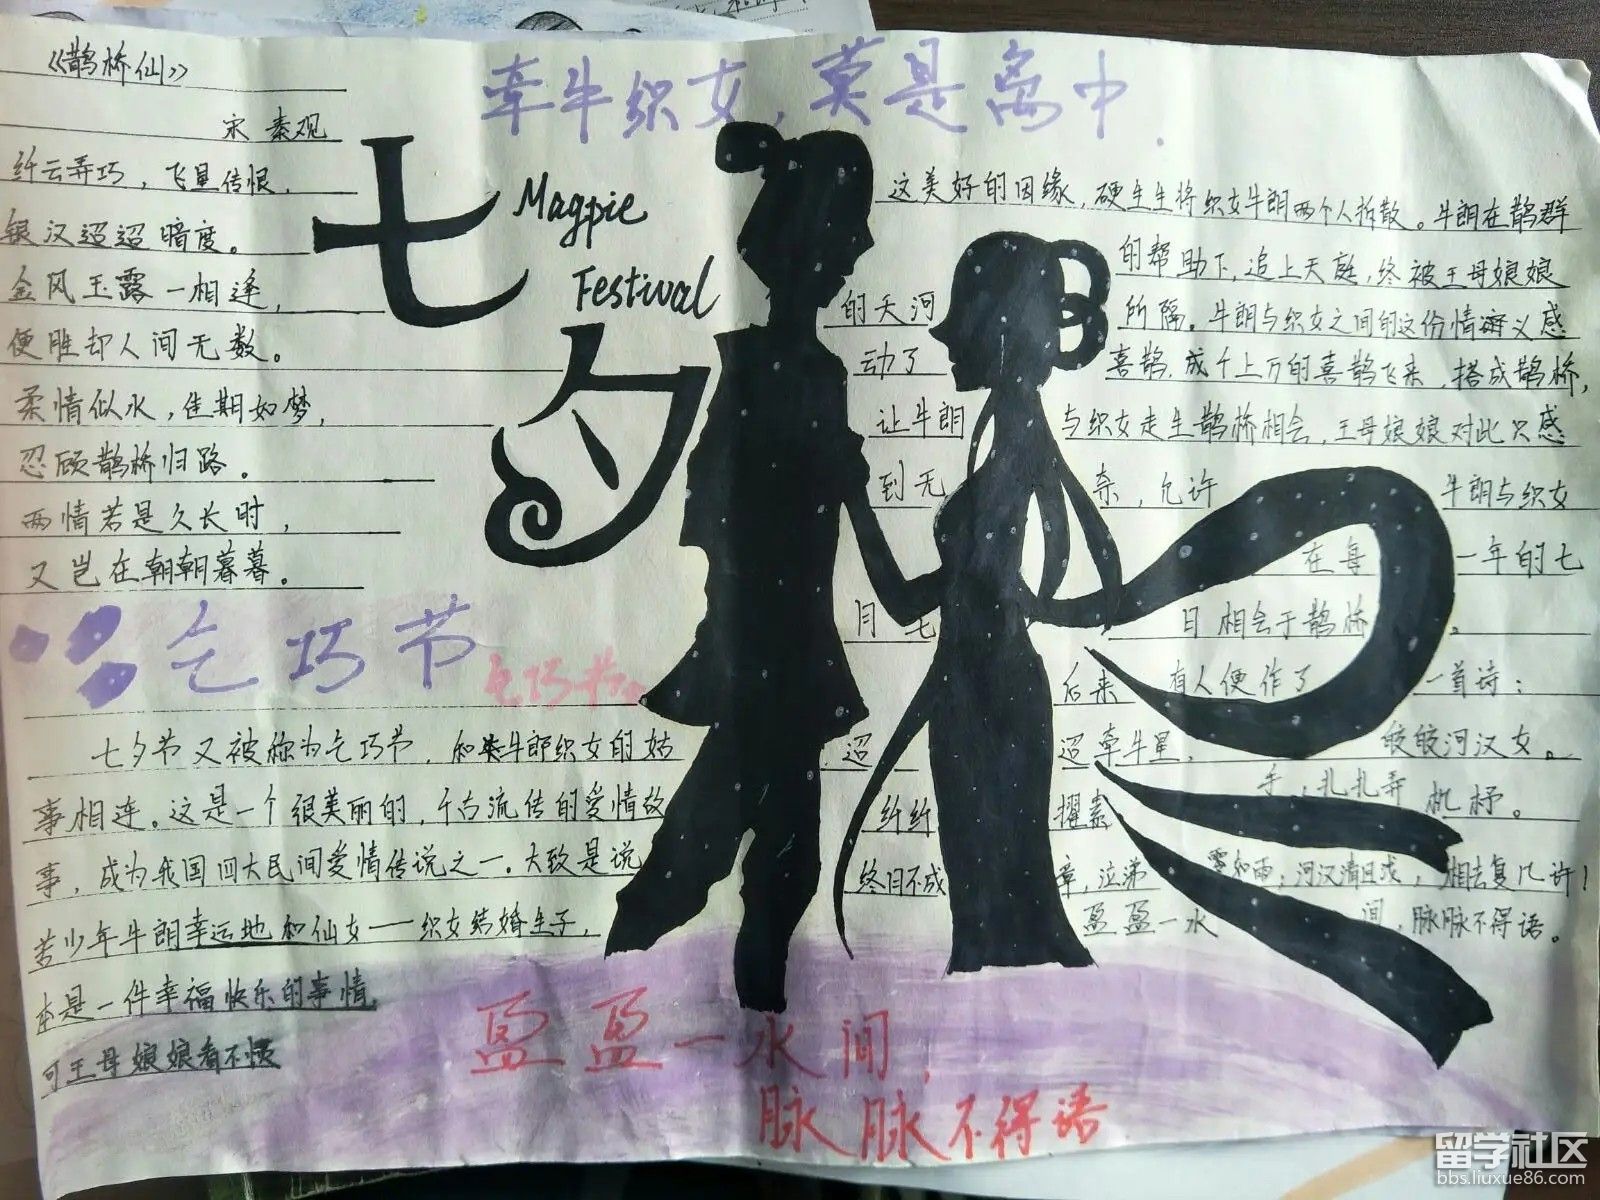 《鹊桥仙》
宋 秦观
纤云弄巧，飞星传恨，
银汉迢迢暗度。
金风玉露一相逢，
便胜却人间无数。
柔情似水，佳期如梦，
忍顾鹊桥归路。
两情若是久长时，
又岂在朝朝暮暮。
牵牛织女，莫是离中.
七夕
Magpie
Festival
乞巧节
乞巧节
七夕节又被称为乞巧节，和牛郎织女的故
事相连。这是一个很美丽的，千古流传的爱情故
事，成为我国四大民间爱情传说之一。大致是说
苦少年牛朗幸运地和仙女——织女结婚生子，
本是一件幸福快乐的事情
可王母娘娘看不惯
这美好的因缘，硬生生将织女牛朗两个人拆散。牛朗在鹊群
的帮助下，追上天庭，终被王母娘娘
的天河所隔。牛朗与织女之间的这份情义感
动了喜鹊，成千上万的喜鹊飞来，搭成鹊桥，
让牛朗与织女走上鹊桥相会，王母娘娘对此只感
到无奈，允许牛朗与织女
在每一年的七
月七日相会于鹊桥。
后来有人便作了一首诗：
迢迢牵牛星，皎皎河汉女。
纤纤擢素手，扎扎弄机杼。
终日不成章，泣涕零如雨；河汉清且浅，相去复几许！
盈盈一水间，脉脉不得语。
盈盈一水间，
脉脉不得语
留学社区
bbs.liuxue86.com